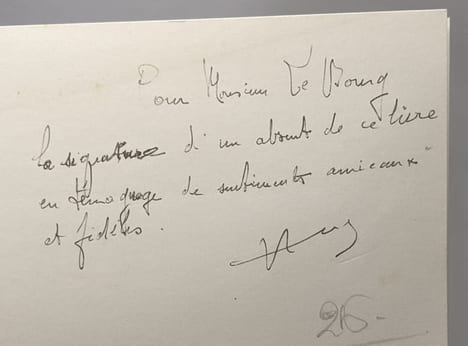 Pour Monsieur Le Bourg
la signature d'un absent de ce livre
en témoignage de sentiments amicaux
et fidèles.
26-